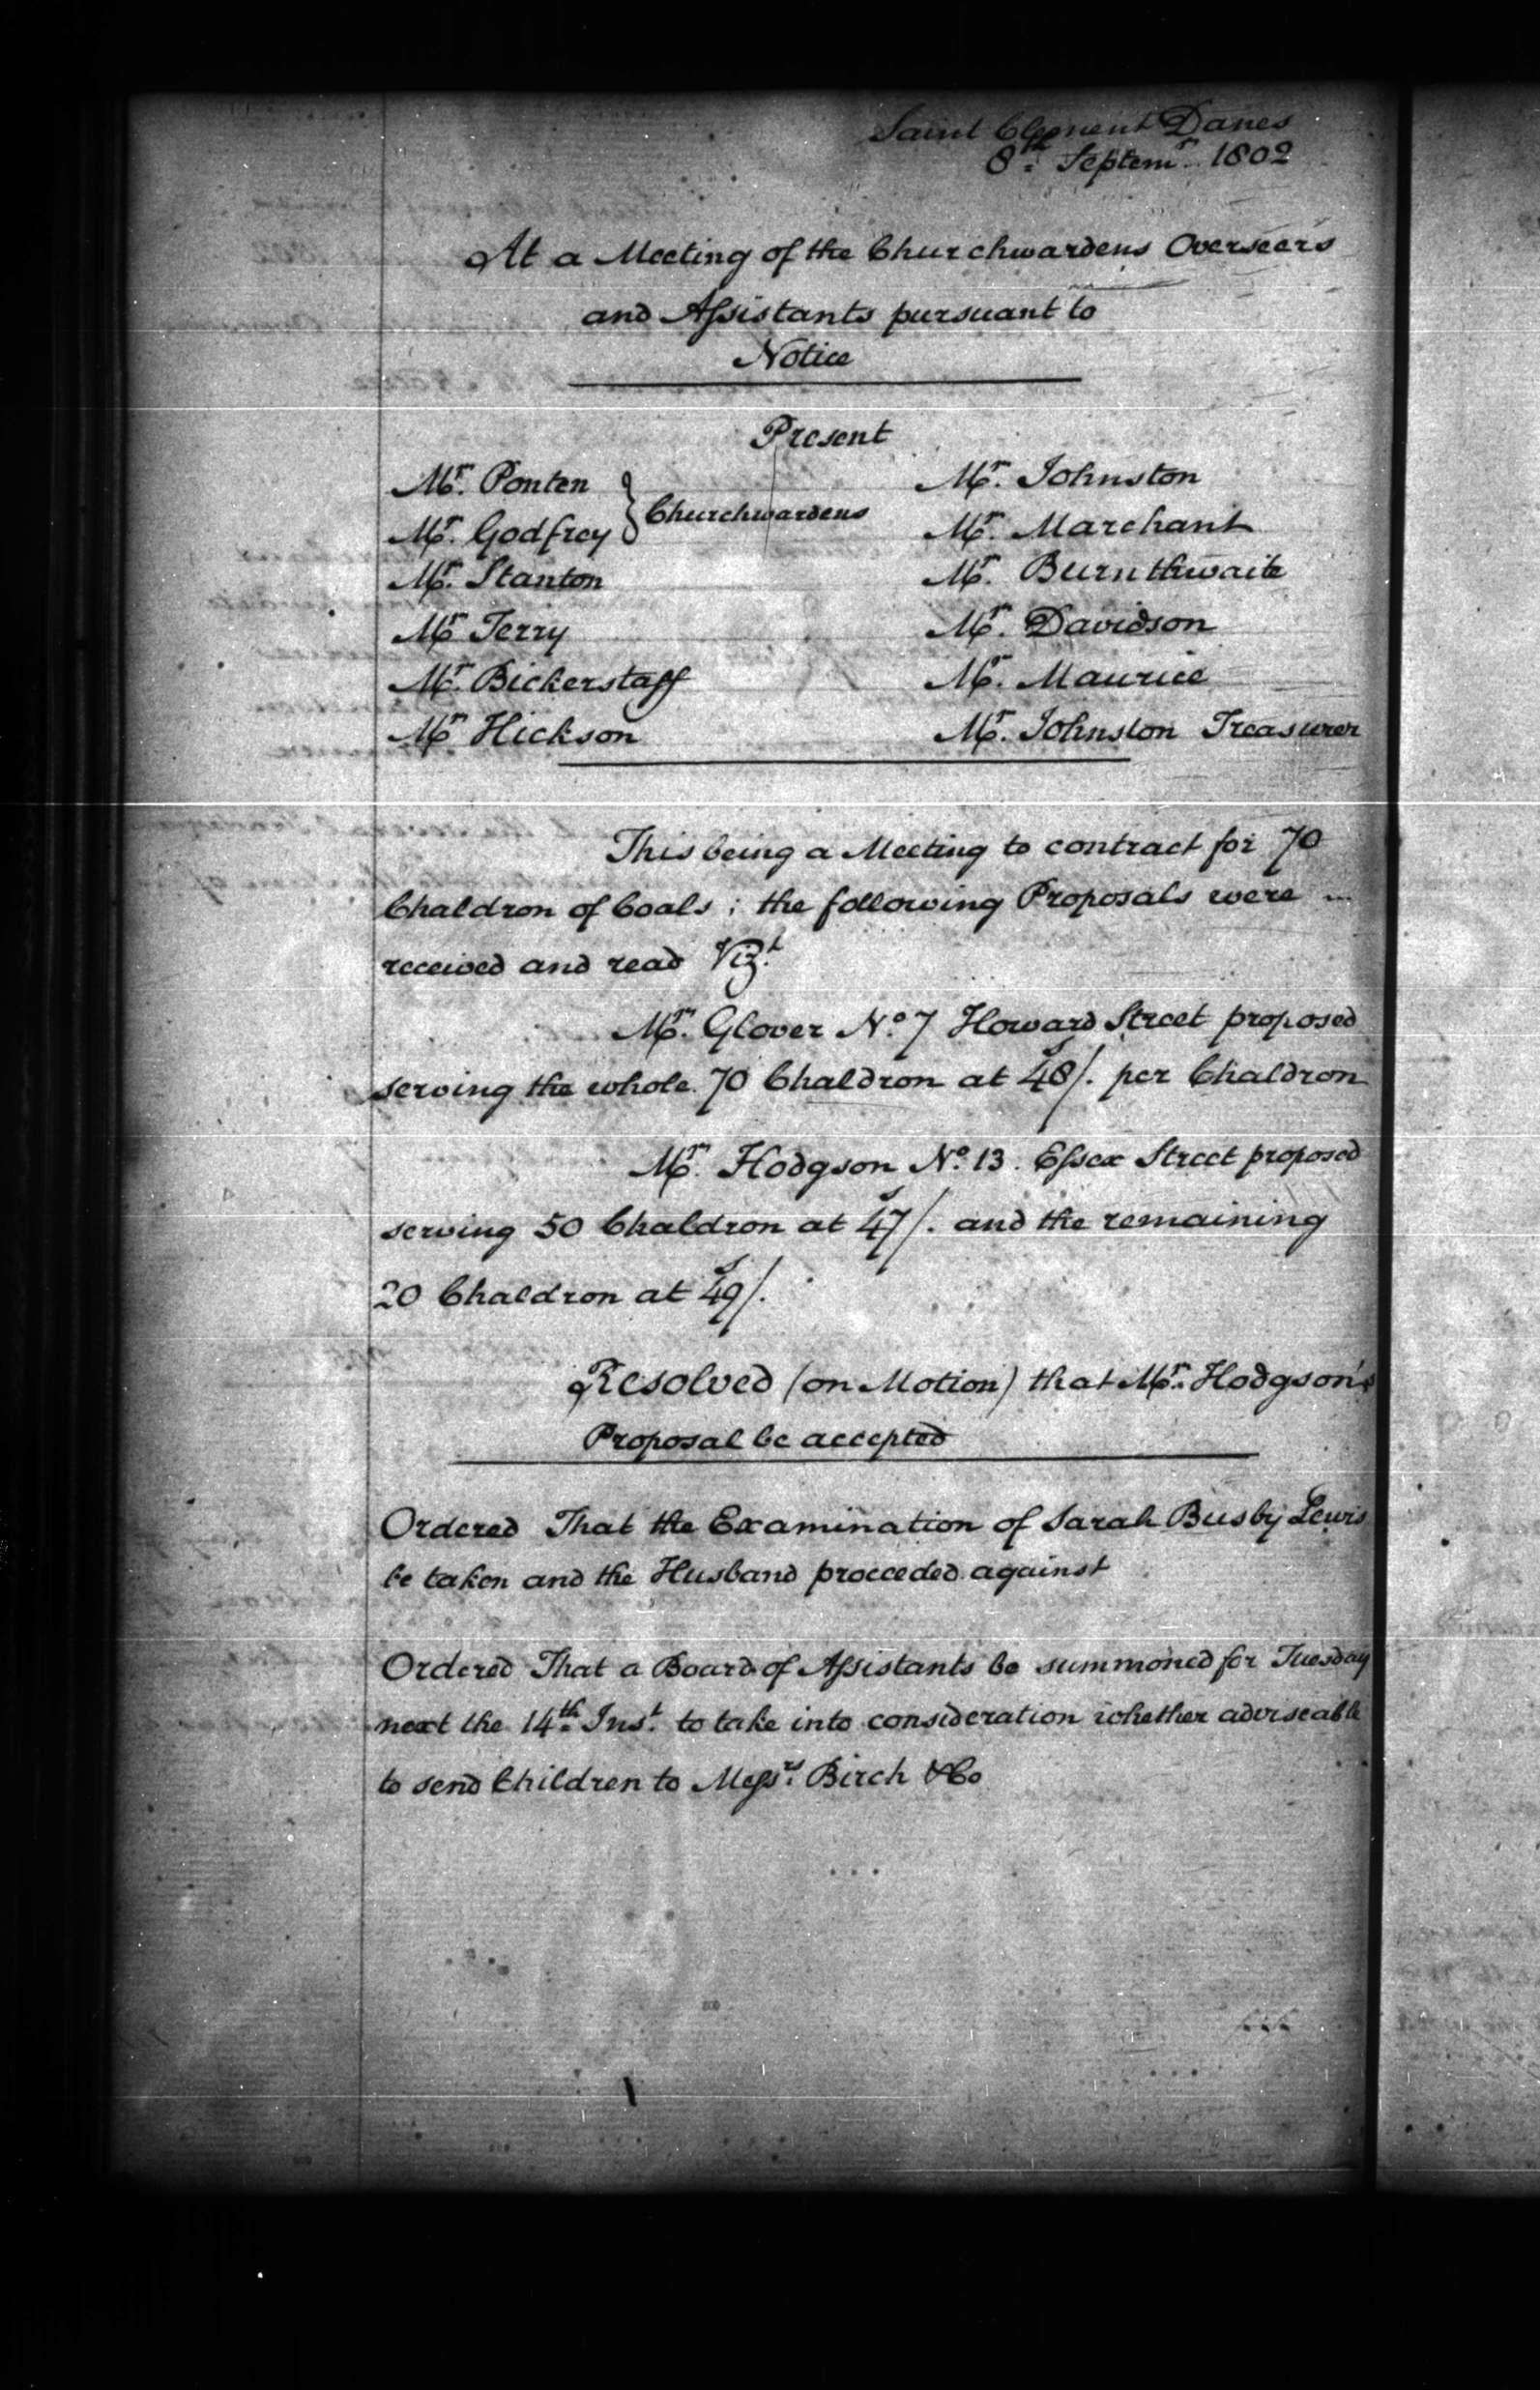 Saint Clement Danes
8th. Septemr. 1802
At a Meeting of the Churchwardens Overseers
and Assistants pursuant to
Notice
Present
Mr. Ponten
Mr. Godfrey
} Churchwardens
Mr. Stanton
Mr. Terry
Mr. Bickerstaff
Mr. Hickson
Mr. Johnston
Mr. Marchant
Mr. Burnthwaite
Mr. Davidson
Mr. Maurice
Mr. Johnston Treasurer
This being a Meeting to contract for 70
Chaldron of Coals; the following Proposals were ...
received and read Vizt.
Mr. Glover No. 7 Howard Street proposed
serving the whole 70 Chaldron at 48s/. per Chaldron
Mr. Hodgson No. 13. Essex Street proposed
serving 50 Chaldron at 47s/. and the remaining
20 Chaldron at 49s/.
Resolved (on Motion) that Mr. Hodgson's
Proposal be accepted
Ordered That the Examination of Sarah Busby Lewis
be taken and the Husband proceeded against
Ordered That a Board of Assistants be summoned for Tuesday
next the 14th. Inst. to take into consideration whether adviseable
to send Children to Messrs. Birch & Co